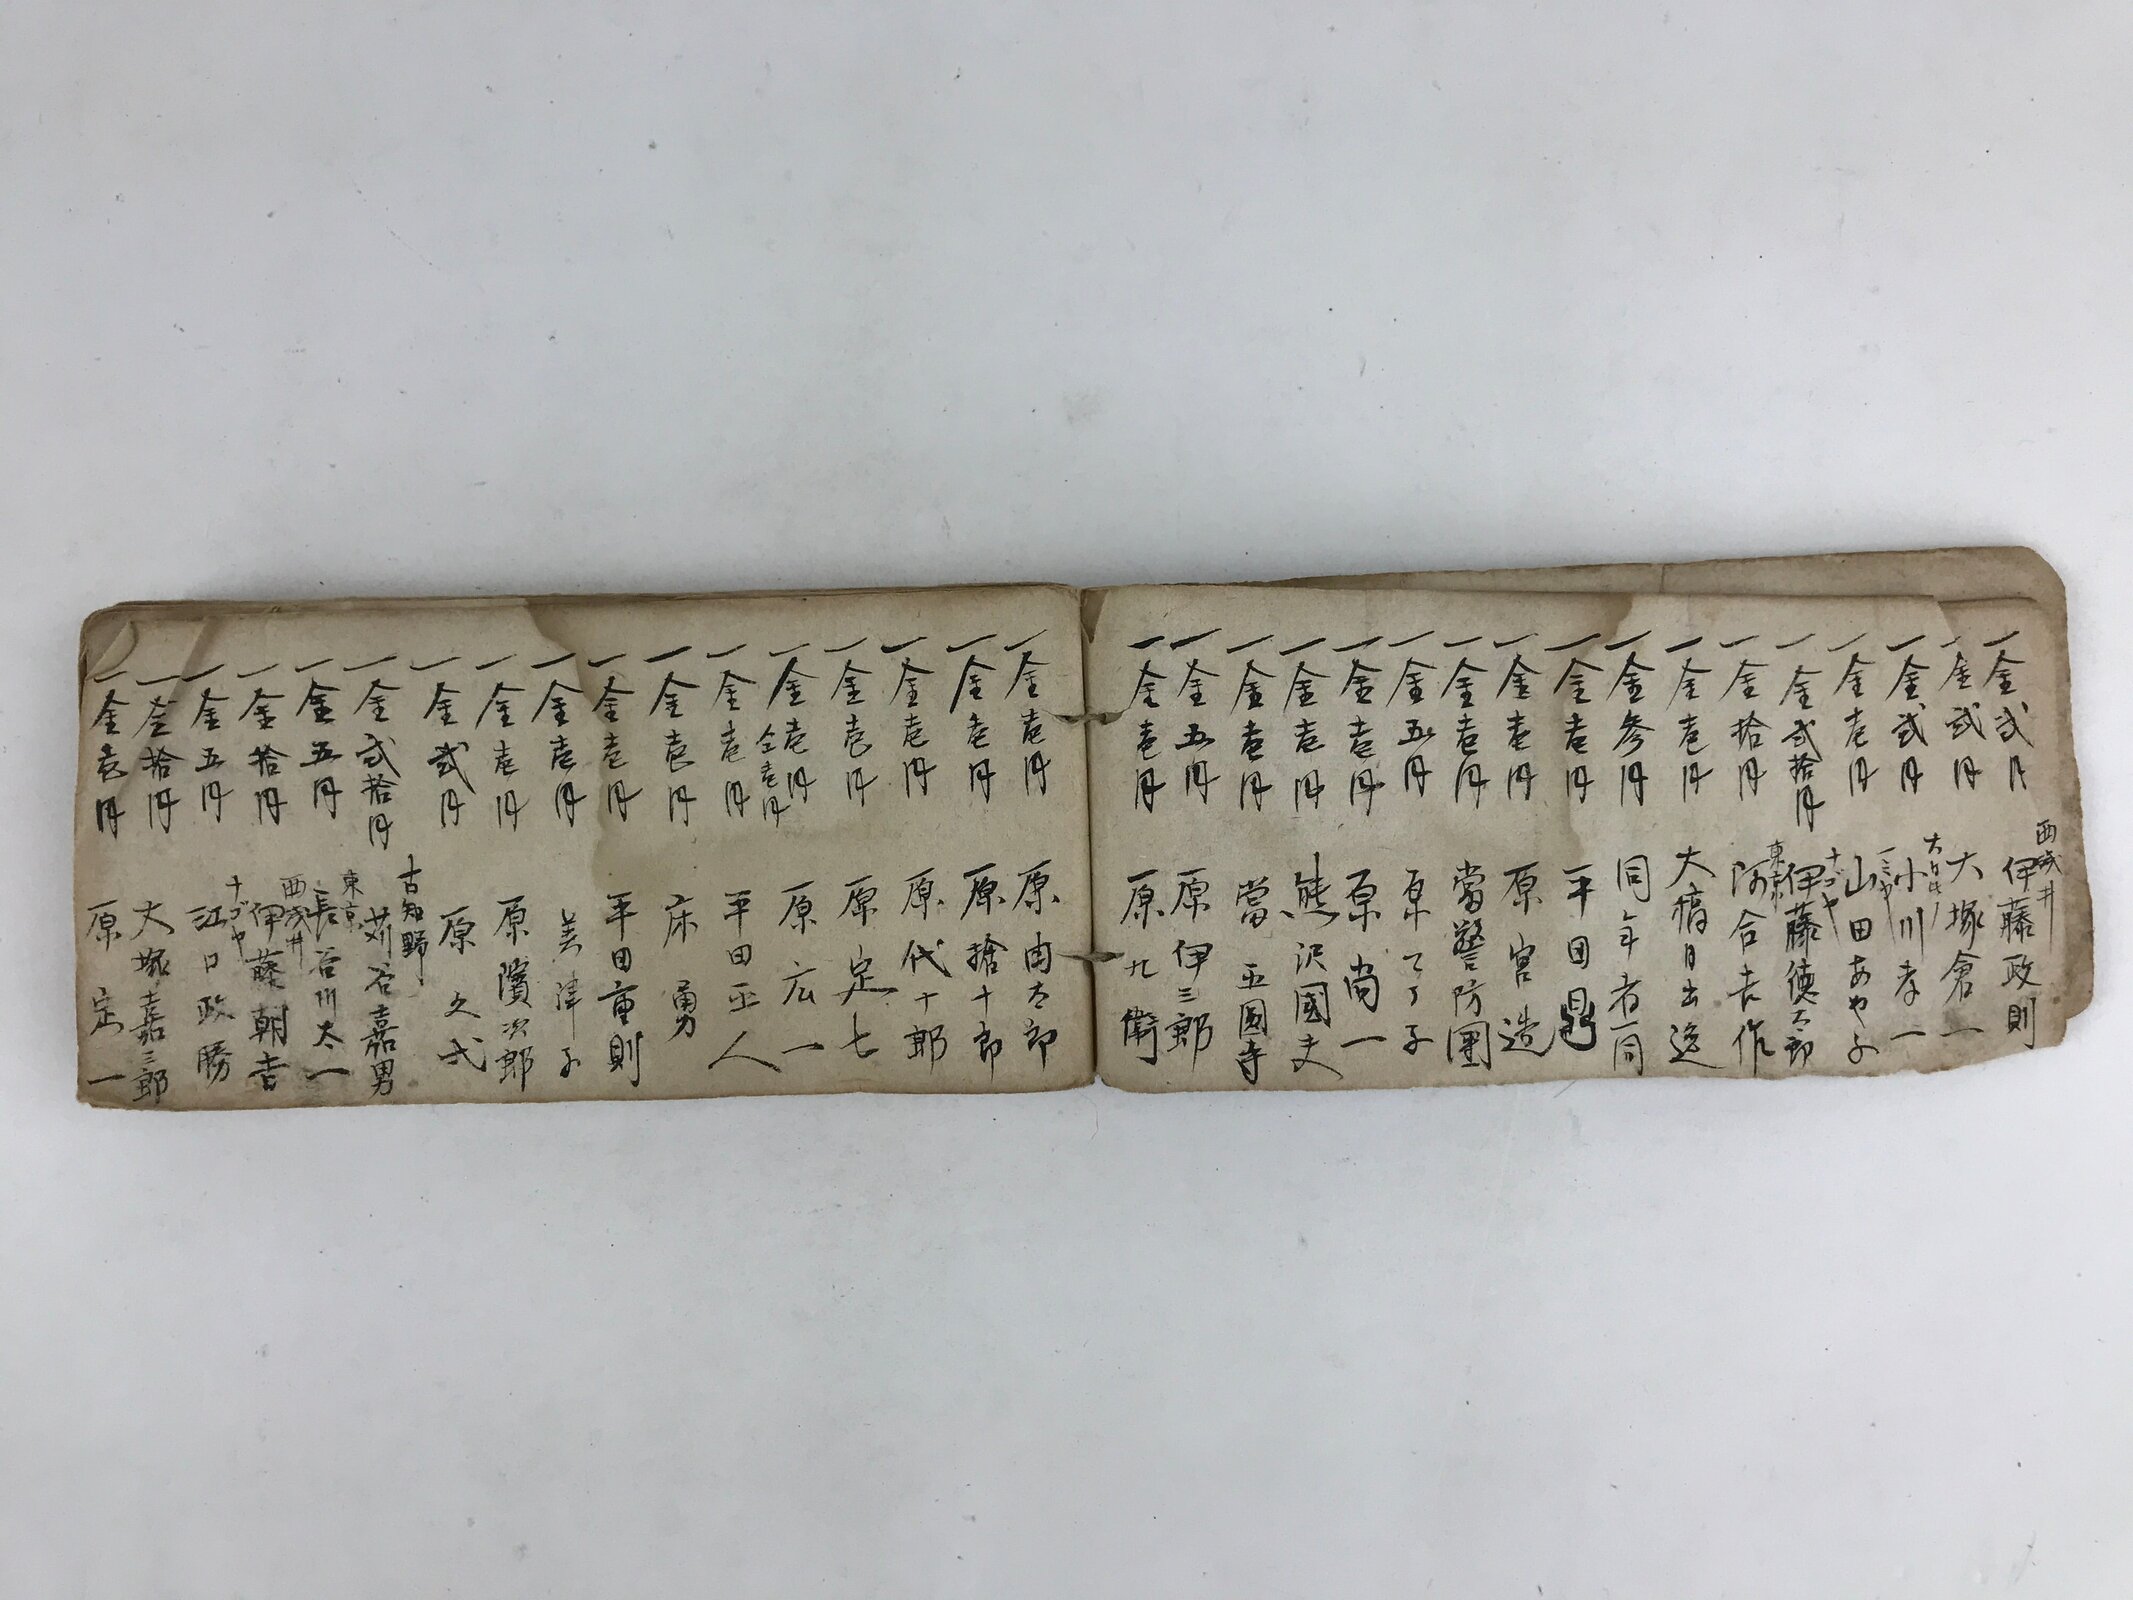 一金弐円 西成井 伊藤政則
一金弐円 大塚倉一
一金弐円 小川孝一
一金壱円 一ミヤ 山田あや子
一金弐拾円 ナゴヤ 伊藤徳太郎
一金拾円 東京 河合吉作
一金壱円 大橋日出
一金参円 同年者一同
一金壱円 平田
一金壱円 原宮造
一金壱円 當警防團
一金五円 原 子
一金壱円 原尚一
一金壱円 熊沢國夫
一金壱円 當 圓寺
一金五円 原伊三郎
一金壱円 原九衛
一金壱円 原由太郎
一金壱円 原捨十郎
一金壱円 原代十郎
一金壱円 原定七
一金壱円 原広一
仝壱円
一金壱円 平田正人
一金壱円 床勇
一金壱円 平田重則
一金壱円 美津子
一金壱円 原濱次郎
一金弐円 原久弌
一金弐拾円 古知野 苅谷嘉男
一金五円 東京 長谷川太一
一金拾円 西成井 伊藤朝吉
一金五円 ナゴヤ 江口政勝
一金拾円 大塚嘉三郎
一金壱円 原定一